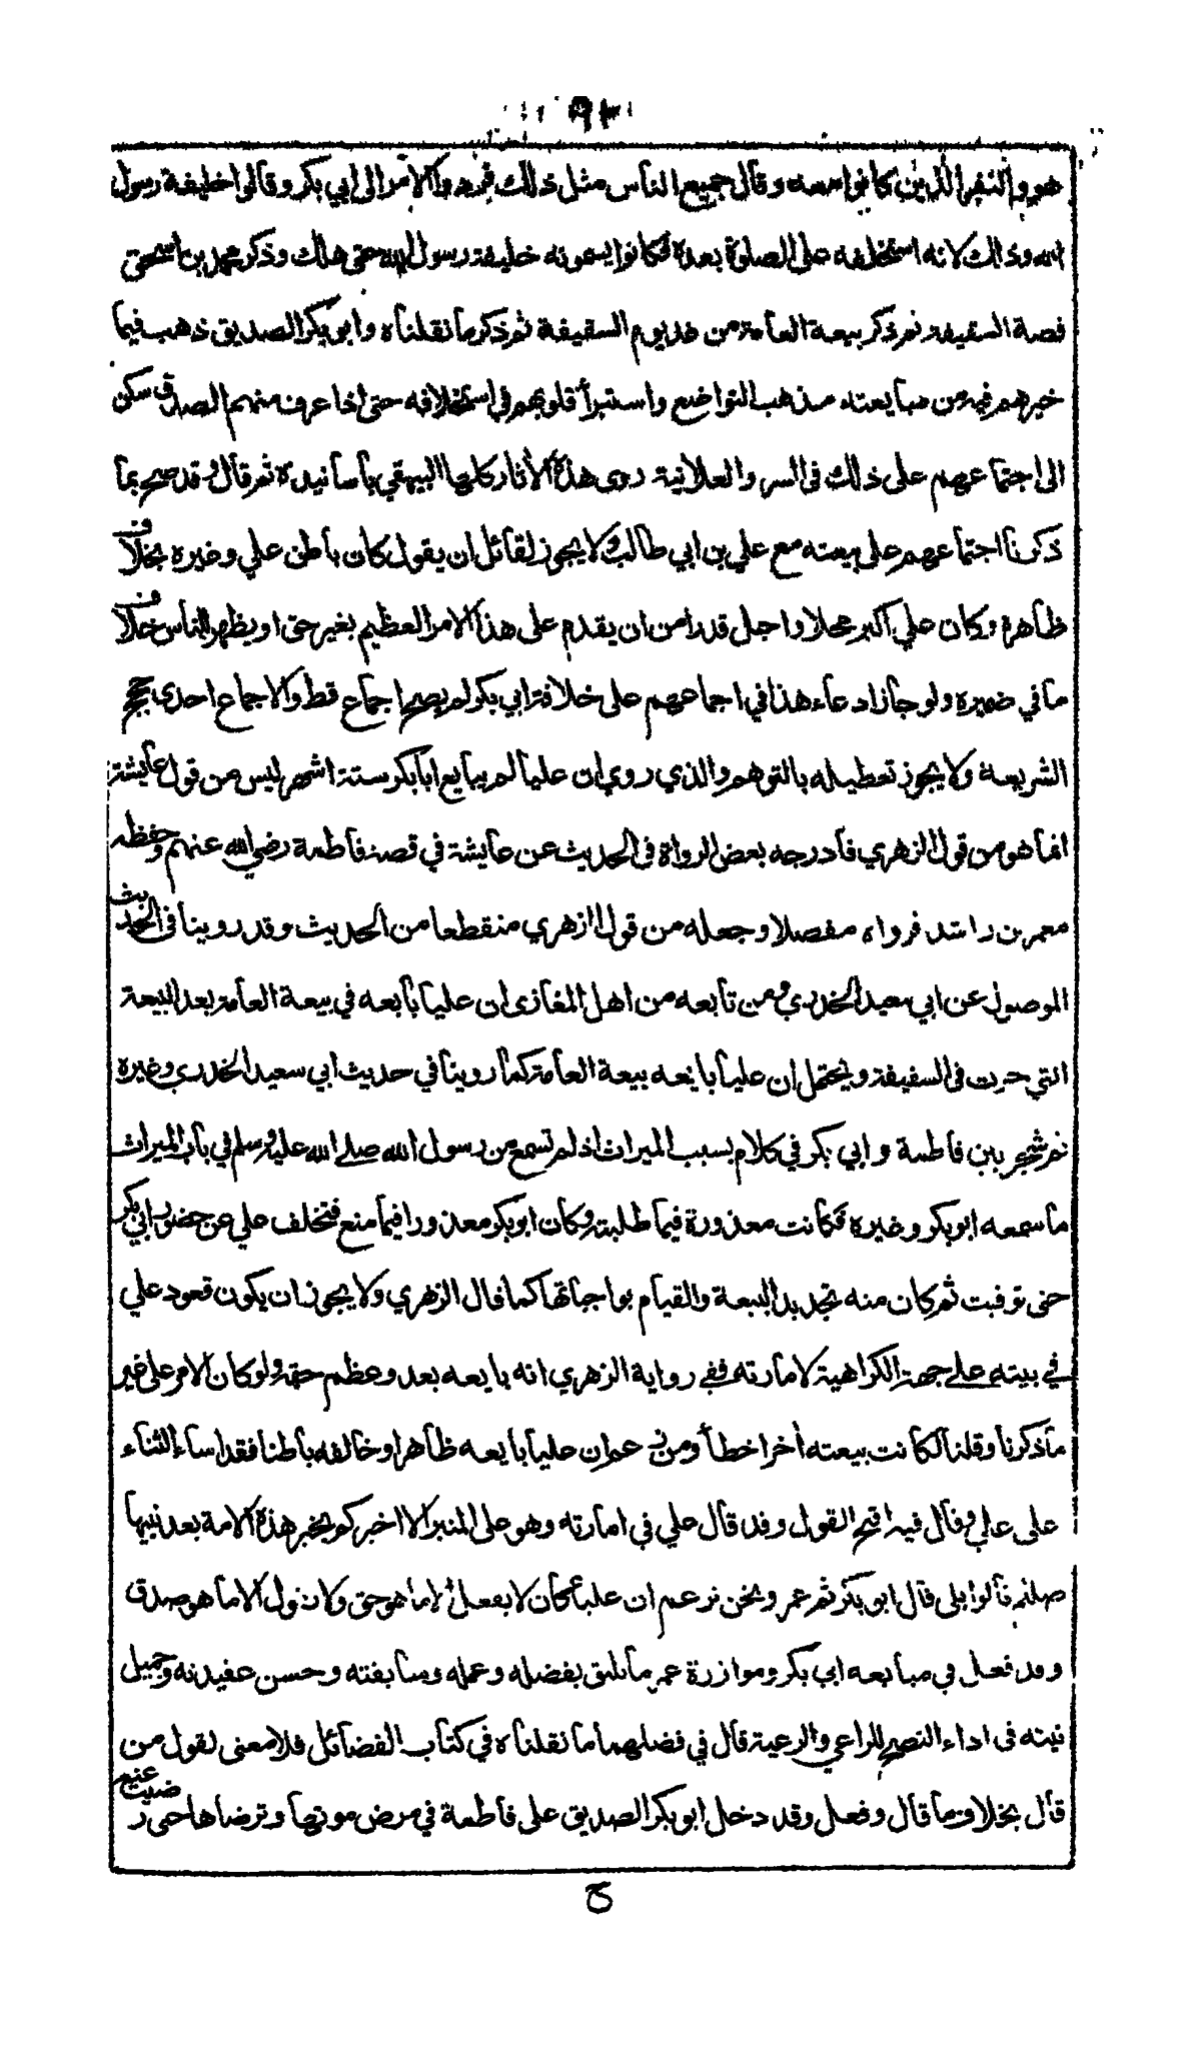 هو والنفر الذين كانوا معه وقال جميع الناس مثل ذلك فرد والامر الى ابي بكر وقالوا خليفة رسول
الله وذلك لانه استخلفه على الصلوة بعده فكانوا يسمونه خليفة رسول الله حتى هلك وذكر محمد بن اسحق
قصة السقيفة ثم ذكر بيعة العامة من غد يوم السقيفة ثم ذكر ما نقلناه وابو بكر الصديق ذهب فيما
خيرهم فيه من مبايعته مذهب التواضع واستبرأ قلوبهم في استخلافه حتى اذا عرف منهم الصدق سكن
الى اجتماعهم على ذلك فى السر والعلانية روى هذه الاثار كلها البيهقي باسانيده ثم قال وقد صح بما
ذكرنا اجتماعهم على بيعته مع علي بن ابي طالب ولا يجوز لقائل ان يقول كان باطن علي وغيره بخلاف
ظاهره وكان علي اكبر محلا واجل قدرا من ان يقدم على هذا الامر العظيم بغير حق او يظهر للناس خلاف
ما في ضميره ولو جاز ادعاء هذا في اجماعهم على خلافة ابي بكر لم يصح اجماع قط والاجماع احدى حجج
الشريعة ولا يجوز تعطيله بالتوهم والذي روي ان عليا لم يبايع ابا بكر ستة اشهر ليس من قول عايشة
انما هو من قول الزهري فادرجه بعض الرواة فى الحديث عن عايشة في قصة فاطمة رضي الله عنهم وحفظه
معمر بن راشد فرواه مفصلا وجعله من قول الزهري منقطعا من الحديث وقد روينا فى الحديث
الموصول عن ابي سعيد الخدري ومن تابعه من اهل المغازى ان عليا بايعه في بيعة العامة بعد البيعة
التي جرت فى السقيفة ويحتمل ان عليا بايعه بيعة العامة كما روينا في حديث ابي سعيد الخدري وغيره
ثم شجر بين فاطمة وابي بكر في كلام بسبب الميراث اذ لم تسمع من رسول الله صلى الله عليه وسلم في باب الميراث
ما سمعه ابو بكر وغيره فكانت معذورة فيما طلبته وكان ابو بكر معذورا فيما منع فتخلف علي عن حضور ابي بكر
حتى توفيت ثم كان منه تجديد البيعة والقيام بواجباتها كما قال الزهري ولا يجوز ان يكون قعود علي
في بيته على جهة الكراهية لامارته ففي رواية الزهري انه بايعه بعد وعظم حقه ولو كان الامر على غير
ما ذكرنا وقلنا لكانت بيعته اخرا خطأ ومن زعم ان عليا بايعه ظاهرا وخالفه باطنا فقد اساء الثناء
على علي وقال فيه اقبح القول وقد قال علي في امارته وهو على المنبر الا اخبركم بخير هذه الامة بعد نبيها
صلعم قالوا بلى قال ابو بكر ثم عمر ونحن نزعم ان عليا كان لا يفعل الا ما هو حق ولا يقول الا ما هو صدق
وقد فعل في مبايعه ابي بكر وموازرة عمر ما يليق بفضله وعمله وسابقته وحسن عقيدته وجميل
نيته فى اداء النصح للراعي والرعية قال في فضلهما ما نقلناه في كتاب الفضائل فلا معنى لقول من
قال بخلاف ما قال وفعل وقد دخل ابو بكر الصديق على فاطمة في مرض موتها وترضاها حتى رضيت عنه
ح